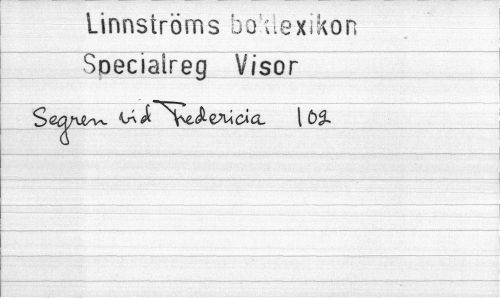 Linnströms boklexikon
Specialreg Visor
Segren vid Fredericia 102